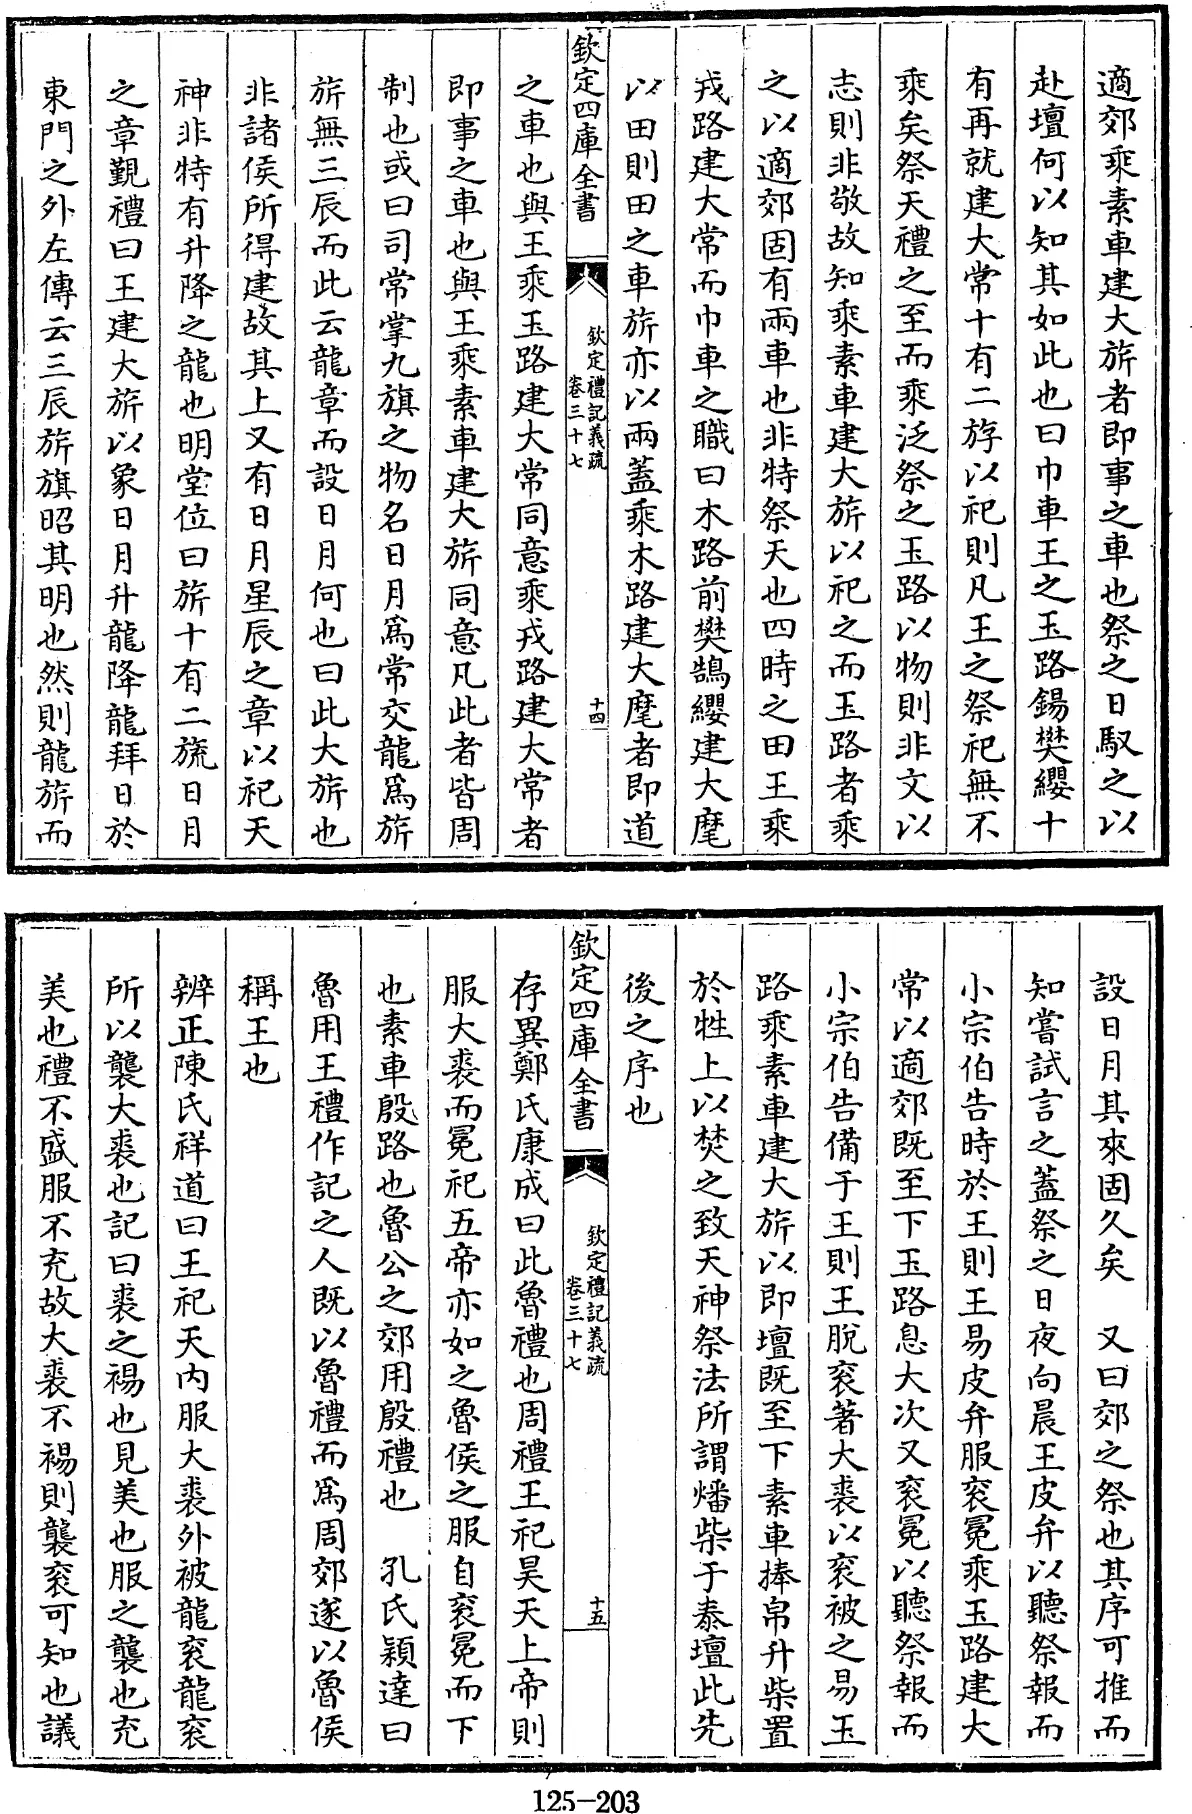 適郊乘素車建大旂者即事之車也祭之日馭之以
赴壇何以知其如此也曰巾車王之玉路鍚樊纓十
有再就建大常十有二斿以祀則凡王之祭祀無不
乘矣祭天禮之至而乘泛祭之玉路以物則非文以
志則非敬故知乘素車建大旂以祀之而玉路者乘
之以適郊固有兩車也非特祭天也四時之田王乘
戎路建大常而巾車之職曰木路前樊鵠纓建大麾
以田則田之車旂亦以兩蓋乘木路建大麾者即道
欽定四庫全書
欽定禮記義疏
卷三十七
十四
之車也與王乘玉路建大常同意乘戎路建大常者
即事之車也與王乘素車建大旂同意凡此者皆周
制也或曰司常掌九旗之物名日月爲常交龍爲旂
旂無三辰而此云龍章而設日月何也曰此大旂也
非諸侯所得建故其上又有日月星辰之章以祀天
神非特有升降之龍也明堂位曰旂十有二旒日月
之章覲禮曰王建大旂以象日月升龍降龍拜日於
東門之外左傳云三辰旂旗昭其明也然則龍旂而
設日月其來固久矣 又曰郊之祭也其序可推而
知嘗試言之蓋祭之日夜向晨王皮弁以聽祭報而
小宗伯告時於王則王易皮弁服衮冕乘玉路建大
常以適郊既至下玉路息大次又衮冕以聽祭報而
小宗伯告備于王則王脫衮著大裘以衮被之易玉
路乘素車建大旂以即壇既至下素車捧帛升柴置
於牲上以焚之致天神祭法所謂燔柴于泰壇此先
後之序也
欽定四庫全書
欽定禮記義疏
卷三十七
十五
存異鄭氏康成曰此魯禮也周禮王祀昊天上帝則
服大裘而冕祀五帝亦如之魯侯之服自衮冕而下
也素車殷路也魯公之郊用殷禮也 孔氏穎達曰
魯用王禮作記之人既以魯禮而爲周郊遂以魯侯
稱王也
辨正陳氏祥道曰王祀天內服大裘外被龍衮龍衮
所以襲大裘也記曰裘之裼也見美也服之襲也充
美也禮不盛服不充故大裘不裼則襲衮可知也議
125-203